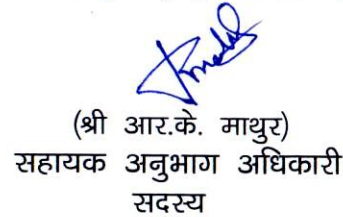 (श्री आर.के. माथुर)
सहायक अनुभाग अधिकारी
सदस्य